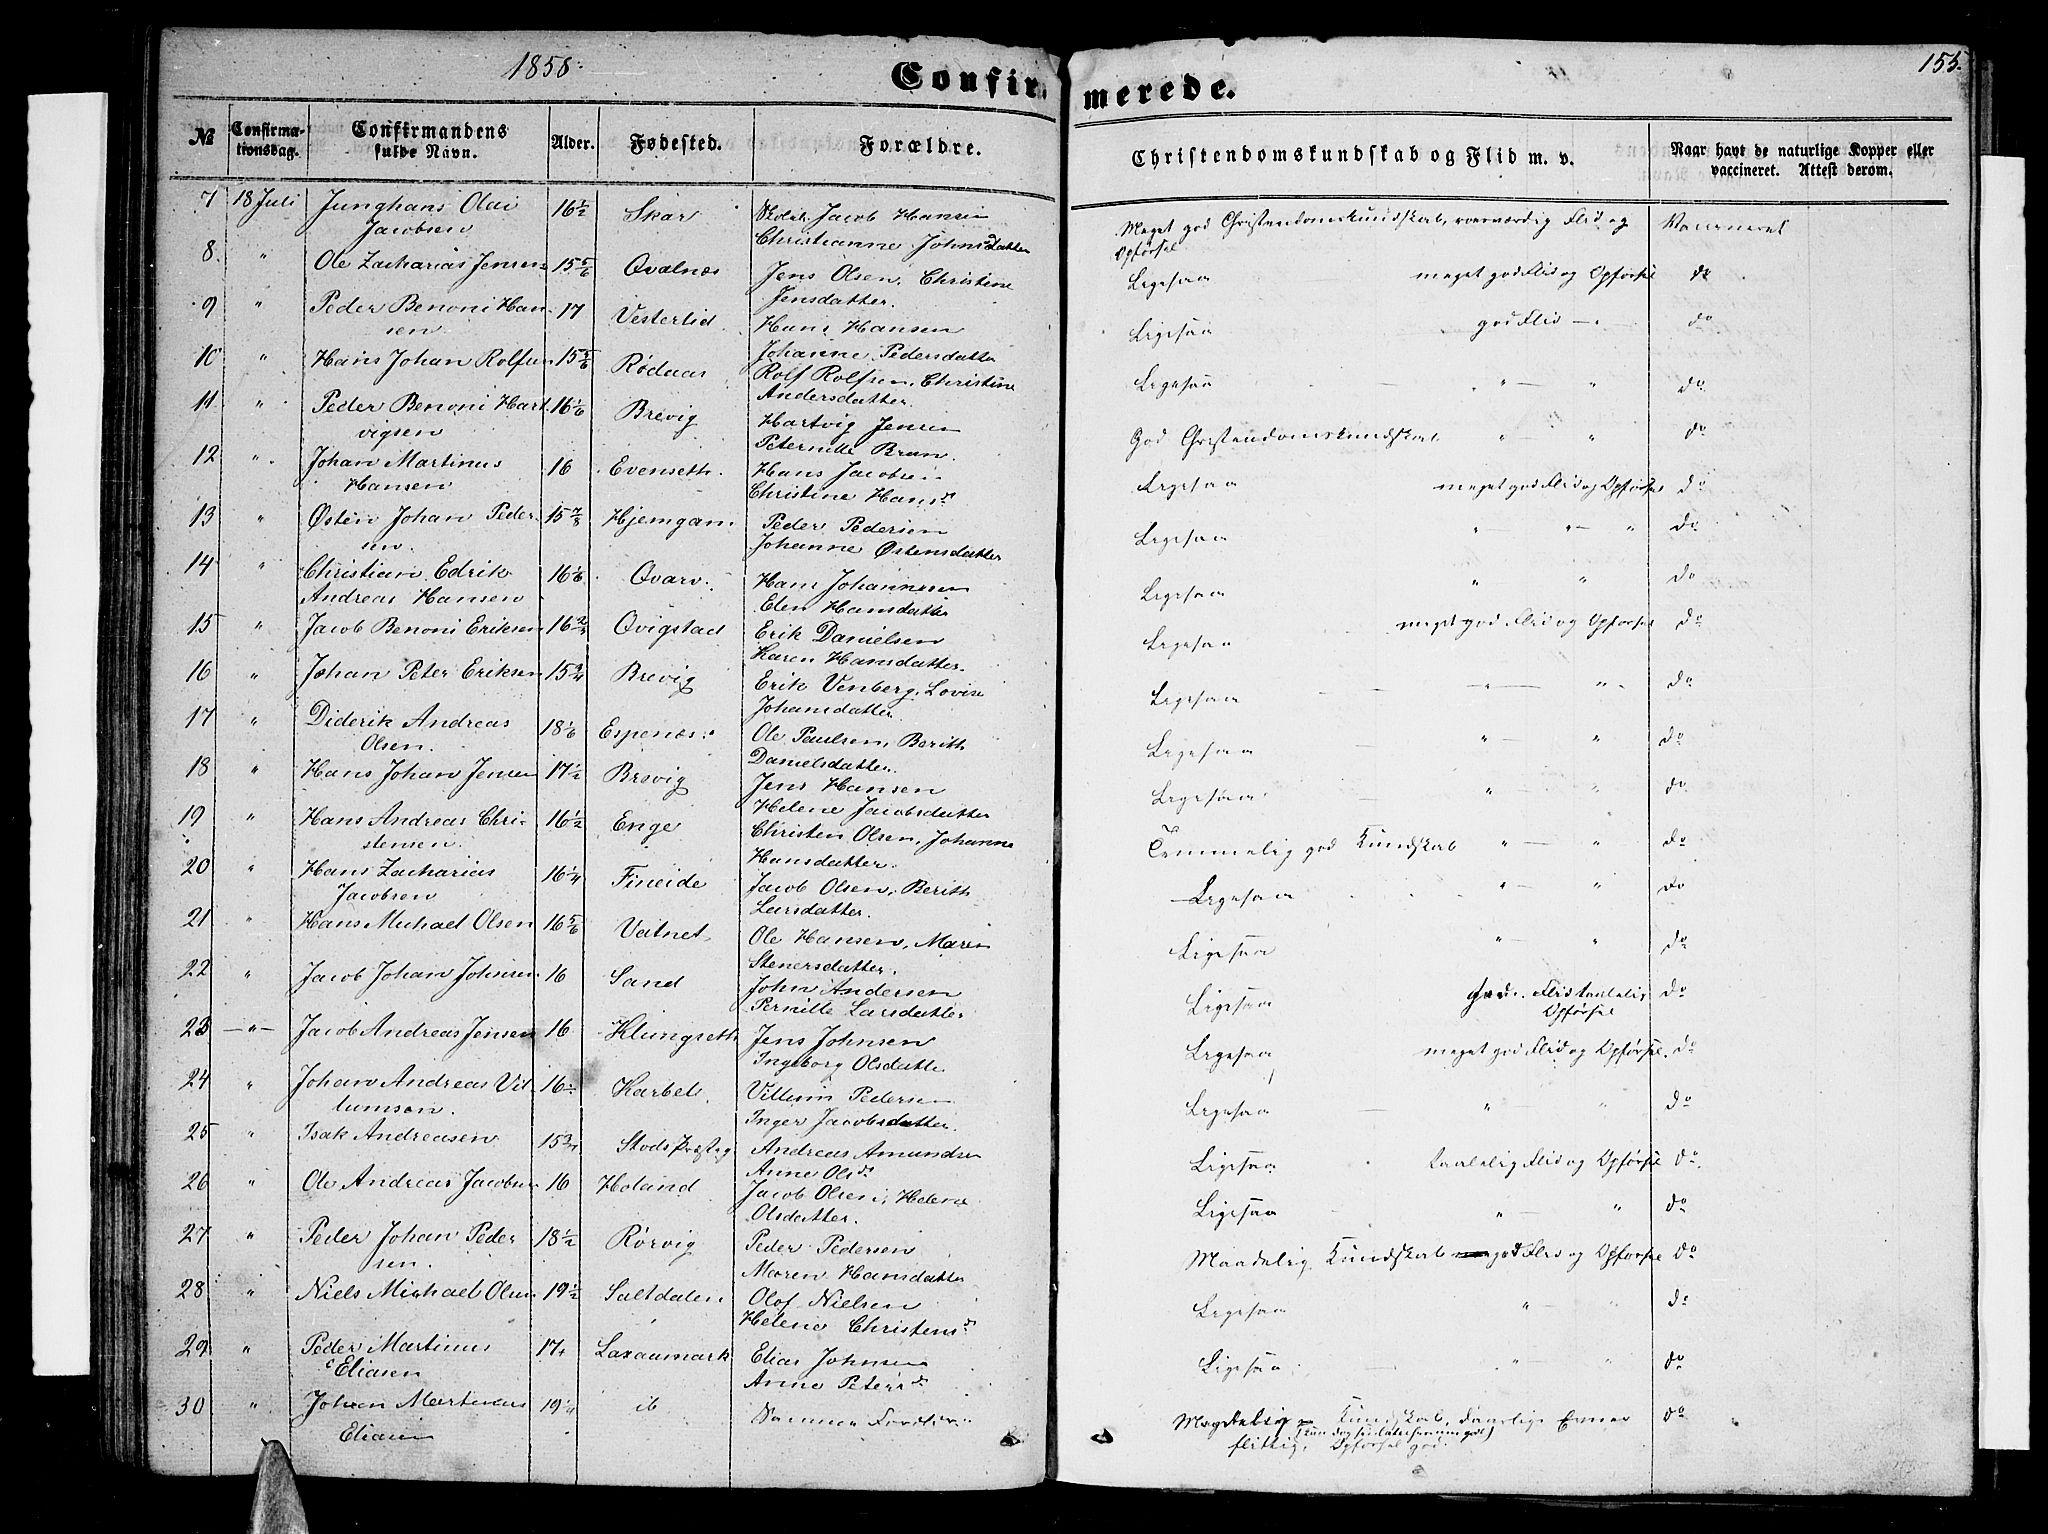 1858.
Confirmerede.
155.
№ Confirmationsdag. Confirmandens fulde Navn. Alder. Fødested. Forældre. Christendomskundskab og Flid m. v. Naar havt de naturlige Kopper eller vaccineret. Attest derom.
7 18 Juli Junghans Olai Jacobsen 16 1/2 Skar Jacob Hansen Christianne Johnsdatter Meget god Christendomskundskab, roesværdig Flid og Opførsel Vaccineret
8. " Ole Zacharias Jensen 15 5/6 Qvalnæs Jens Olsen, Christine Jensdatter. Ligesaa meget god Flid og Opførsel do
9 " Peder Benoni Hansen 17 Vesterlid Hans Hansen Johanne Pedersdatter Ligesaa god Flid — do
10 " Hans Johan Rolfsen 15 5/6 Rødaas Rolf Rolfsen, Christine Andersdatter. Ligesaa " — " do
11 " Peder Benoni Hartvigsen 16 1/6 Brevig Hartvig Jensen Pernille Brun. God Christendomskundskab " " do
12 " Johan Martinus Hansen 16 Evenseth. Hans Jacobsen Christine Hansd. Ligesaa meget god Flid og Opførsel do
13 " Østen Johan Pedersen. 15 7/8 Hjemgam Peder Pedersen Johanne Østensdatter Ligesaa " " — " do
14 " Christian Edrik Andreas Hansen 16 1/6 Qvarv. Hans Johannesen Elen Hansdatter Ligesaa " " do
15 " Jacob Benoni Eriksen 16 2/3 Qvigstad Erik Danielsen Karen Hansdatter. Ligesaa meget god Flid og Opførsel do
16 " Johan Peter Eriksen 15 3/4 Brevig Erik Venberg, Lovise Johansdatter. Ligesaa — " — " do
17 " Diderik Andreas Olsen. 18 1/6 Espenæs. Ole Paulsen, Berith Danielsdatter. Ligesaa " " do
18 " Hans Johan Jensen 17 1/2 Brevig Jens Hansen Helene Jacobsdatter Ligesaa — " " do
19 " Hans Andreas Christensen. 16 1/2 Enge Christen Olsen, Johanne Hansdatter. Temmelig god Kundskab " — " do
20 " Hans Zacharias Jacobsen 16 1/4 Fineide Jacob Olsen, Berith Larsdatter. Ligesaa " — " do
21 " Hans Michael Olsen 16 5/6 Vatnet Ole Hansen, Maren Stenersdatter. Ligesaa " — " do
22 " Jacob Johan Johnsen 16 Sand John Andersen Pernille Larsdatter Ligesaa god Flid taalelig Opførsel do
23 — " — Jacob Andreas Jensen 16 Klungseth Jens Johnsen Ingeborg Olsdatter Ligesaa meget god Flid og Opførsel. do
24 " Johan Andreas Villumsen. 16 Karbøl. Villum Pedersen Inger Jacobsdatter. Ligesaa — " — " do
25 " Isak Andreasen 15 3/4 Stods Præsteg Andreas Amundsen Anne Olsd. Ligesaa taalelig Flid og Opførsel do.
26 " Ole Andreas Jacobsen 16 Høland Jacob Olsen, Helena Olsdatter. Ligesaa " — " do
27 " Peder Johan Pedersen. 18 1/2 Rørvig Peder Pedersen Maren Hansdatter Maadelig Kundskab god Flid og Opførsel do
28 " Niels Michael Olsen 19 1/2 Saltdalen Olof Nielsen Helene Christensd. Ligesaa " — " do
29 " Peder Martinus Eliasen 17 Laxaamark Elias Johnsen Anne Petersd. Ligesaa. — " — " do
30 " Johan Martinus Eliasen 19 1/4 ib Samme Forældre Maadelig Kundskab, daarlige Evner flittig, Opførsel god. do